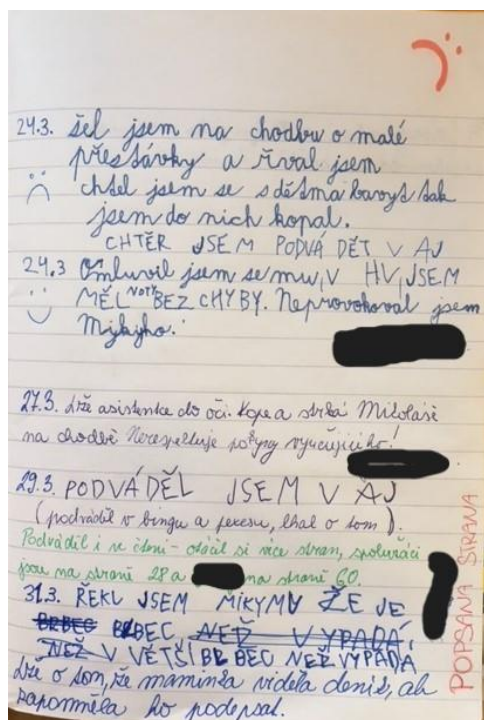 24.3. šel jsem na chodbu o malé
přestávky a řval jsem
chtel jsem se s dětma bavyt tak
jsem do nich kopal.
CHTĚR JSEM PODVÁDĚT V AJ
24.3 Omluvil jsem se mu, V HV, JSEM
MĚL NOTY BEZ CHYBY. Neprovokoval jsem
Mykyho.
27.3. Lže asistentce do očí. Kope a strká Mikoláše
na chodbě Nerespektuje pokyny vyučujícího!
29.3. PODVÁDĚL JSEM V AJ
(podvádil v bingu a pexesu, lhal o tom).
Podvádil i ve čtení - otáčil si více stran, spolužáci
jsou na straně 28 a na straně 60.
31.3. ŘEKL JSEM MIKYMU ŽE JE
BLBEC BLBEC, NEŽ VYPADÁ,
NEŽ V VĚTŠÍ BLBEC NEŽ VYPADÁ
Lže o tom, že maminka viděla deníč, ale
zapomněla ho podepsat.
POPSANÁ STRANA